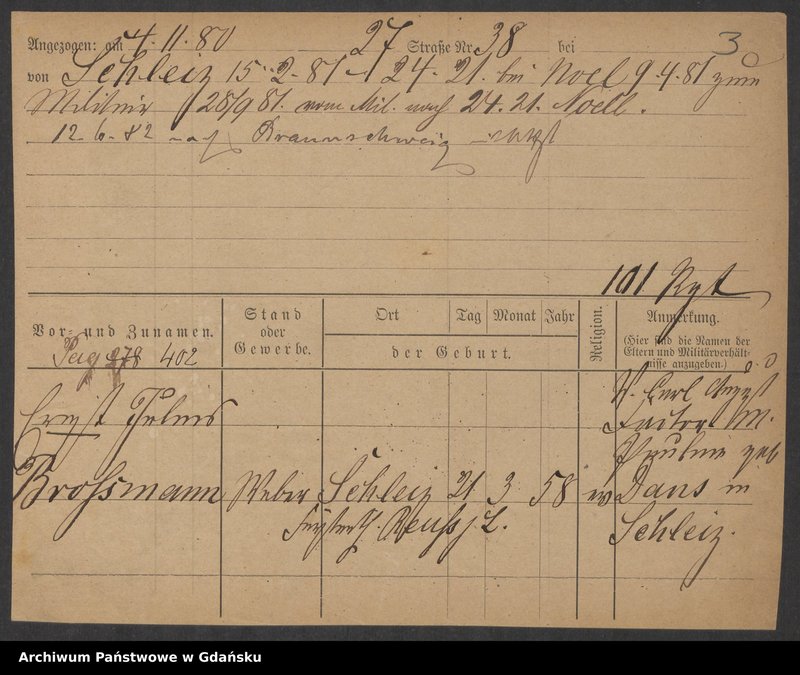 Angezogen: am 4.11.80 27 Straße Nr. 38 bei 3
von Schleiz 15-2-81 24. 21. bei Noel 9.4.81 zum
Militair 28/9 81. vom Mil. nach 24. 21. Noell.
12-6-82 Braunschweig
101
Vor- und Zunamen.
Pag 402
Stand
oder
Gewerbe.
Ort Tag Monat Jahr
der Geburt.
Religion.
Anmerkung.
(Hier sind die Namen der
Eltern und Militärverhält-
nisse anzugeben.)
Ernst Julius
Brossmann Weber Schleiz 21 3 58 ev
Reuss j. L.
V. Carl August
Factor M.
Pauline geb
Dans in
Schleiz.
Archiwum Państwowe w Gdańsku